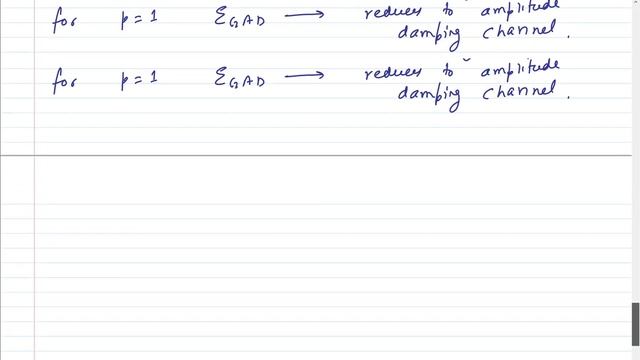 for p = 1 ℰGAD ⟶ reduces to amplitude
damping channel.
for p = 1 ℰGAD ⟶ reduces to amplitude
damping channel.